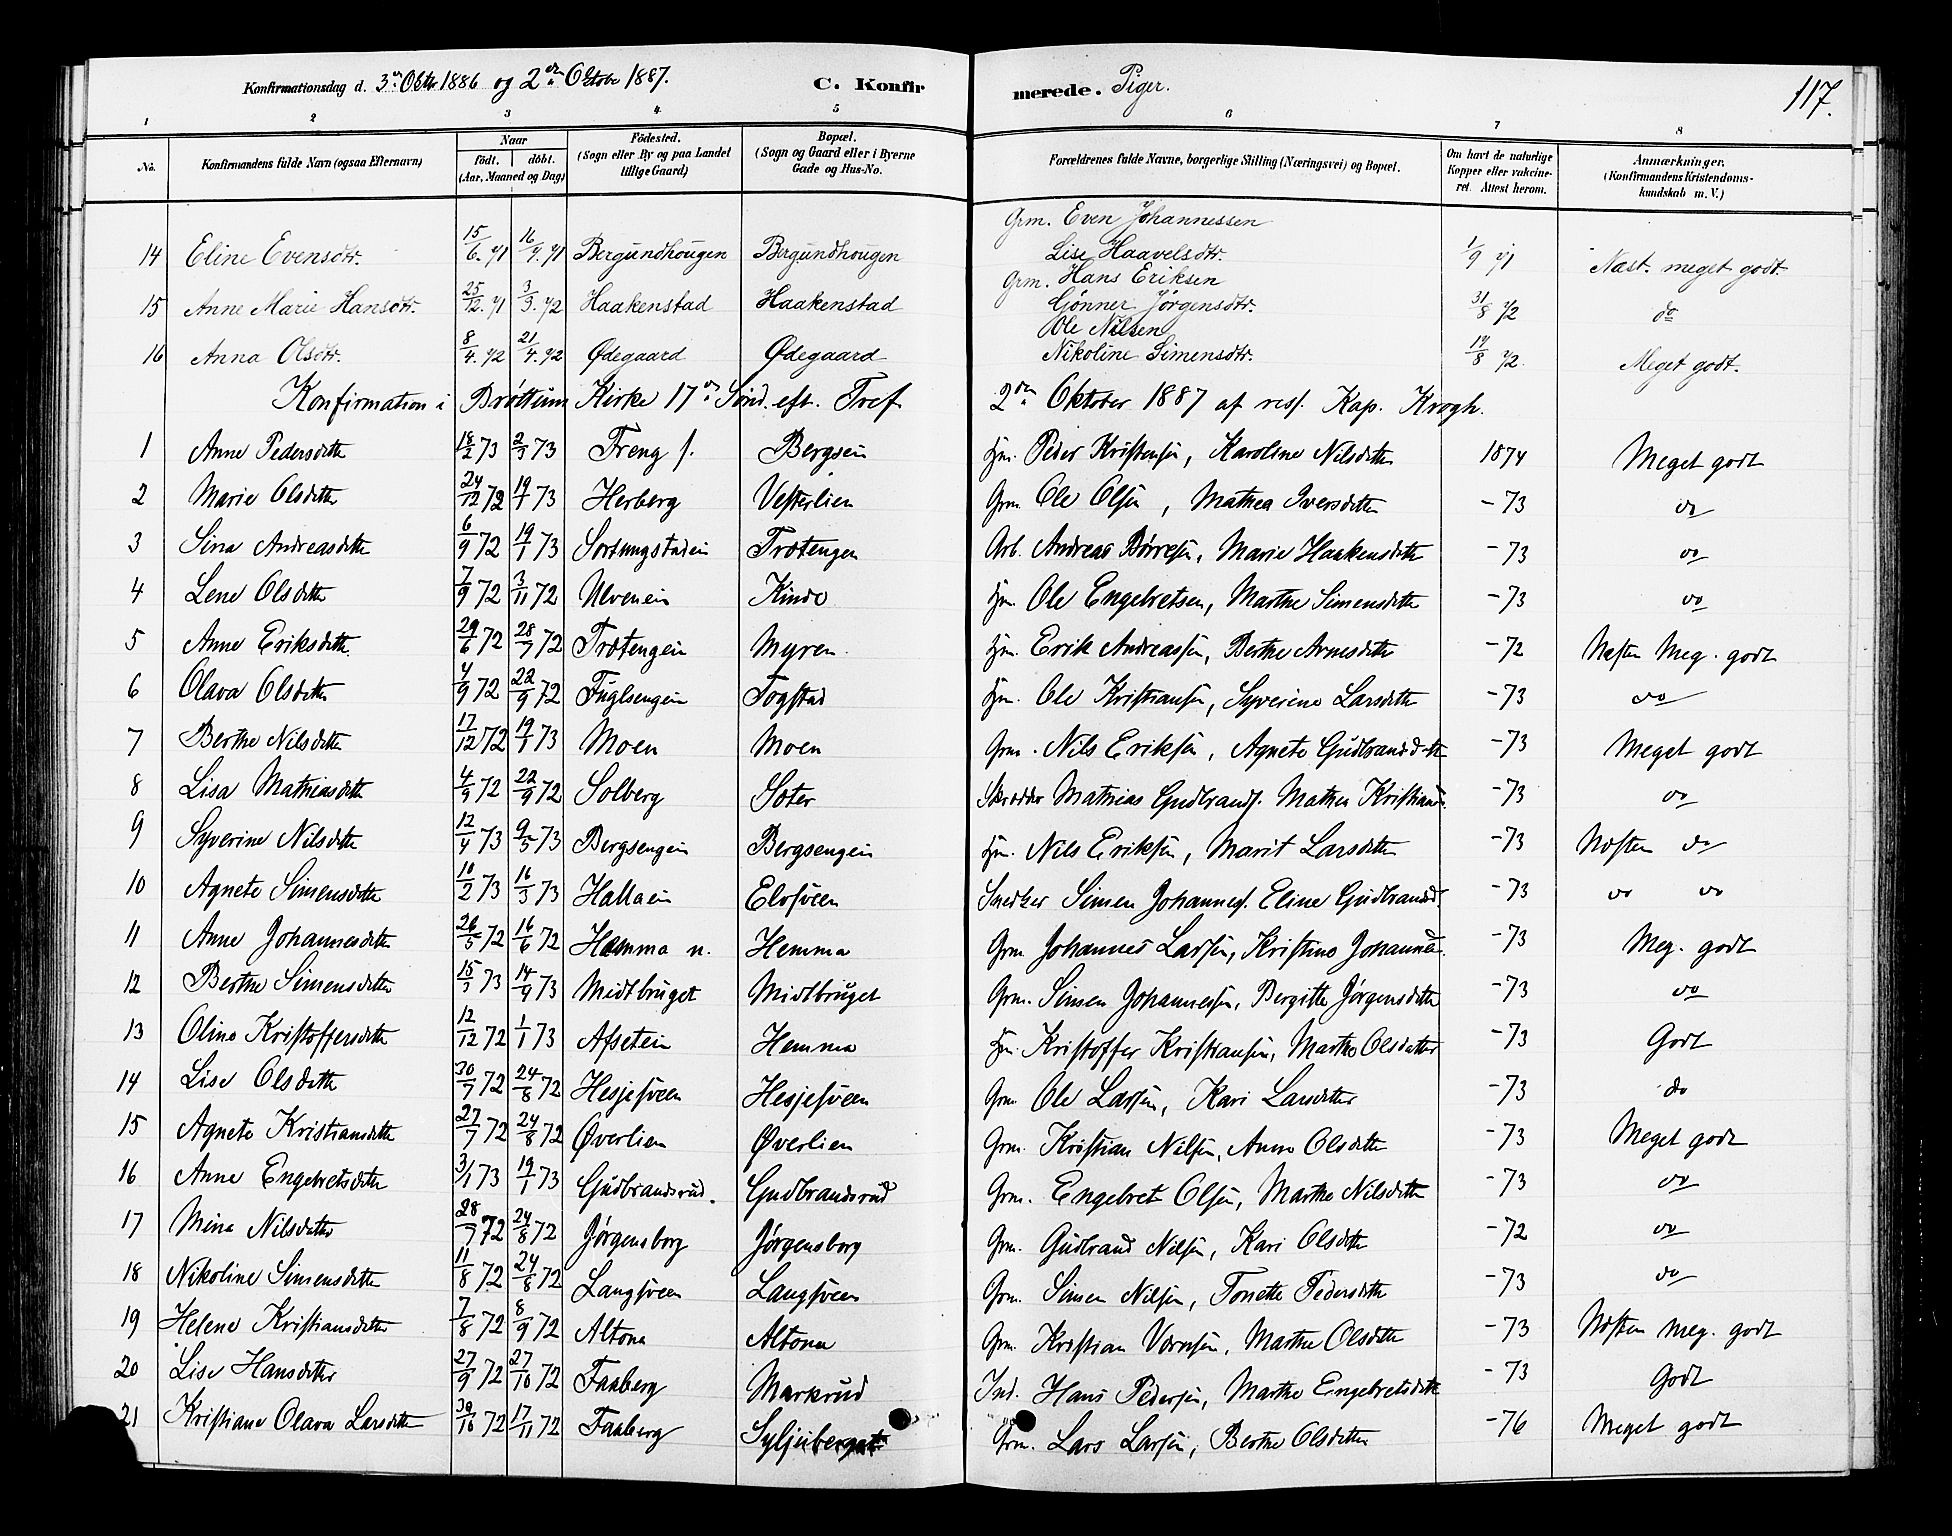 Konfirmationsdag d. 3die Oktbr 1886 og 2den Oktober 1887. C. Konfirmerede. Piger. 117.
1 2 3 4 5 6 7 8
No. Konfirmandens fulde Navn (ogsaa Efternavn) Naar født. døbt. (Aar, Maaned og Dag) Fødested. (Sogn eller By og paa Landet tillige Gaard) Bopæl. (Sogn og Gaard eller i Byerne Gade og Hus-No. Forældrenes fulde Navne, borgerlige Stilling (Næringsvei) og Bopæl. Om havt de naturlige Kopper eller vakcineret. Attest herom. Anmærkninger. (Konfirmandens Kristendomskundskab m. V.)
14 Eline Evensdtr. 15/6.71 16/7.71 Bergundhougen Bergundhougen Grm. Even Johannessen Lise Haavelsdtr. 1/9 71 Næst. meget godt
15 Anne Marie Hansdtr. 25/12.71 3/3.72 Haakenstad Haakenstad Grm. Hans Eriksen Gønner Jørgensdtr. 31/8 72 do
16 Anna Olsdtr. 8/4.72 21/4.72 Ødegaard Ødegaard Ole Nilsen Nikoline Simensdtr. 19/8 72 Meget godt.
Konfirmation i Brøttum Kirke 17de Sønd. eft. Tref 2den Oktober 1887 af res. Kap. Krogh.
1 Anne Pedersdtter 18/2 73 2/3 73 Freng s. Bergsein Hm. Peder Kristensen, Karoline Nilsdtter 1874 Meget godt
2 Marie Olsdtter 24/12 72 19/1 73 Herberg Vesterlien Grm. Ole Olsen, Mathea Iversdtter -73 do
3 Sina Andreasdtter 6/9 72 19/1 73 Sortungstadein Trætengen Arb. Andreas Børresen, Marie Haakensdtter -73 do
4 Lene Olsdtter 7/9 72 3/11 72 Ulvenein Kindo Hm. Ole Engebretsen, Marthe Simensdtter -73 do
5 Anne Eriksdtter. 29/6 72 28/7 72 Trætengein Myren. Hm. Erik Andreassen, Berthe Arnesdtter -72 Næsten Meg. godt
6 Olava Olsdtter 4/9 72 22/9 72 Fuglsengein Fogstad Hm. Ole Kristiansen, Syverine Larsdtter -73 do
7 Berthe Nilsdtter 17/12 72 19/1 73 Moen Moen Grm. Nils Eriksen, Agnete Gudbrandsdtr -73 Meget godt
8 Lisa Mathiasdtter 4/9 72 22/9 72 Solberg Soter Skrædder Mathias Gudbrands. Mathea Kristians. -73 do
9 Syverine Nilsdtter 12/4 73 9/5 73 Bergsengein Bergsengein Hm. Nils Eriksen, Marit Larsdtter -73 Næsten do
10 Agnete Simensdtter 10/2 73 16/3 73 Hallaein Elvsveen Snedker Simen Johannes. Eline Gudbrandsd. -73 do do
11 Anne Johannesdtter 26/5 72 16/6 72 Hemma n. Hemma Grm Johannes Larsen, Kristine Johannesd. -73 Meg. godt
12 Berthe Simensdtter 15/3 73 14/4 73 Midtbruget Midtbruget Grm. Simen Johannessen, Bergitte Jørgensdtter -73 do
13 Oline Kristoffersdtter 12/12 72 1/1 73 Afsetein Hemma Hm. Kristoffer Kristiansen, Marthe Olsdatter -73 Godt
14 Lise Olsdtter 30/7 72 24/8 72 Hesjesveen Hesjesveen Grm. Ole Larsen, Kari Larsdtter -73 do
15 Agnete Kristiansdtter 27/7 72 24/8 72 Øverlien Øverlien Grm. Kristian Nilsen, Anne Olsdtter -73 Meget godt
16 Anne Engebretsdtter 3/1 73 19/1 73 Gudbrandsrud. Gudbrandsrud Grm. Engebret Olsen, Marthe Nilsdtter -73 do
17 Mina Nilsdatter 28/7 72 24/8 72 Jørgensborg Jørgensborg Grm. Gudbrand Nilsen, Kari Olsdtter -72 do
18 Nikoline Simensdtter 11/8 72 24/8 72 Langsveen Langsveen Grm. Simen Nilsen, Tonette Pedersdtter -73 do
19 Helene Kristiansdtter 7/8 72 8/9 72 Altona Altona Grm. Kristian Vernsen, Marthe Olsdtter -73 Næsten meg. godt
20 Lise Hansdatter 27/9 72 27/10 72 Faaberg Markrud Ind. Hans Pedersen, Marthe Engebretsdtr -73 Godt
21 Kristiane Olava Larsdtter 30/10 72 17/11 72 Faaberg Syljuberget Grm. Lars Larsen, Berthe Olsdtter -76 Meget godt